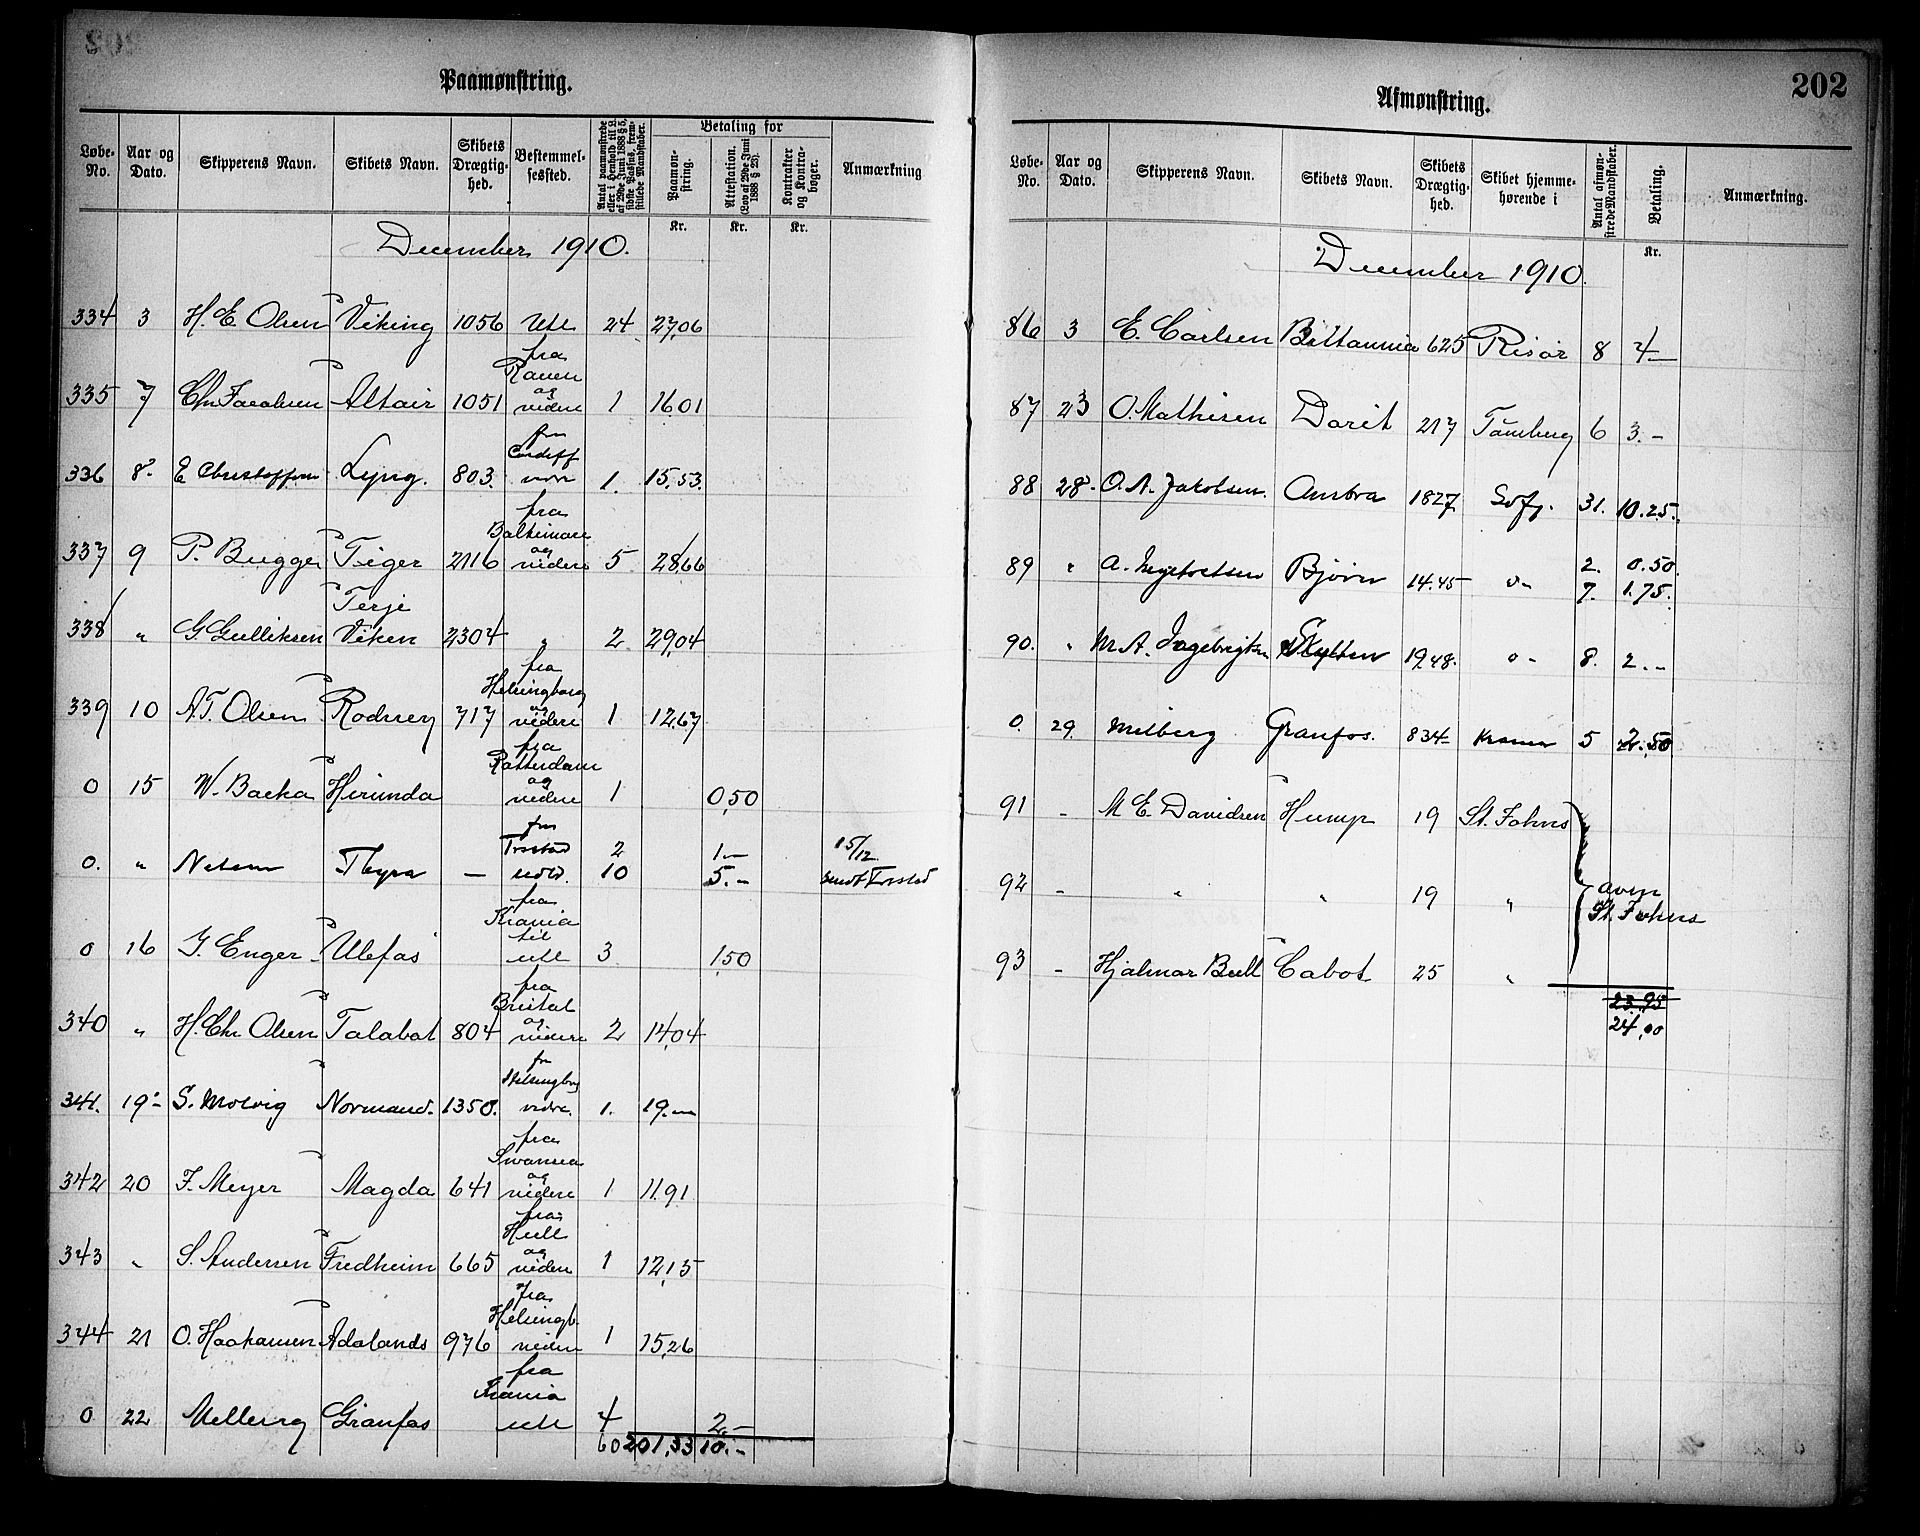 Paamønstring.
Løbe-No. Aar og Dato. Skipperens Navn. Skibets Navn. Skibets Drægtighed. Bestemmelsessted. Antal paamønstrede eller i Henhold til L. af 29de Juni 1888 § 5, sidste Passus, fremstillede Mandskaber. Betaling for Paamønstring. Attestation. (Lov af 29de Juni 1888 § 23). Kontrakter og Kontrabøger. Anmærkning
Kr. Kr. Kr.
December 1910.
334 3 H. E. Olsen Viking 1056 Ull 24 27,06
335 7 Chr Jacobsen Altair 1051 fra Rouen og videre 1 16,01
336 8 E Christoffersen Lyng. 803. fra Cardiff vidre 1. 15,53.
337 9 P. Bugge Tiger 2116 fra Baltimore og videre 5 28,66
338 " G. Gulliksen Terje Viken 2304 " 2 29,04
339 10 A.T. Olsen Rodney 717 fra Helsingborg og videre 1 12,67
0 15 W. Backa Hirunda fra Rotterdam og videre 1 0,50
0. " Nelsen Thyra — fra 2 1.—
10 5.— 15/12
0 16 Y. Enger Ulefos fra Krania til 3 1,50
340 " H. Chr Olsen Talabot 804 fra Bristol og videre 2 14,04
341. 19 S. Molvig Normand. 1350. fr Helsingborg vidre. 1. 19.—
342 20 F. Meyer Magda 641 fra Swansea og videre 1 11,91
343 " S. Andersen Fredheim 665 fra Hull og videre 1 12,15
344 21 O. Haakansen Adalands 976 fra Helsingb. videre 1 15,26
0 22 Granfos fra Krania 4 2.—
60 201,33 10.—
202
Afmønstring.
Løbe-No. Aar og Dato. Skipperens Navn. Skibets Navn. Skibets Drægtighed. Skibet hjemmehørende i Antal afmønstrede Mandskaber. Betaling. Anmærkning.
Kr.
December 1910.
86 3 E. Carlsen Brittannia 625 Risør 8 4—
87 23 O. Mathisen Dorit 217 Tønsberg 6 3.—
88 28 O. A. Jakobsen. Ambra 1827 31. 10.25.
89 " A. Bjørn 14.45 2. 0.50.
7. 1.75.
90. " M. A. Ingebrigtsen 1948. 8. 2.—
0. 29. Granfos. 834 5 2,50
91 - M E Davidsen Hump 19 St. Johns
92 - " " 19 " St. Johns
93 - Hjalmar Bull Cabot 25 "
23,95
24,00